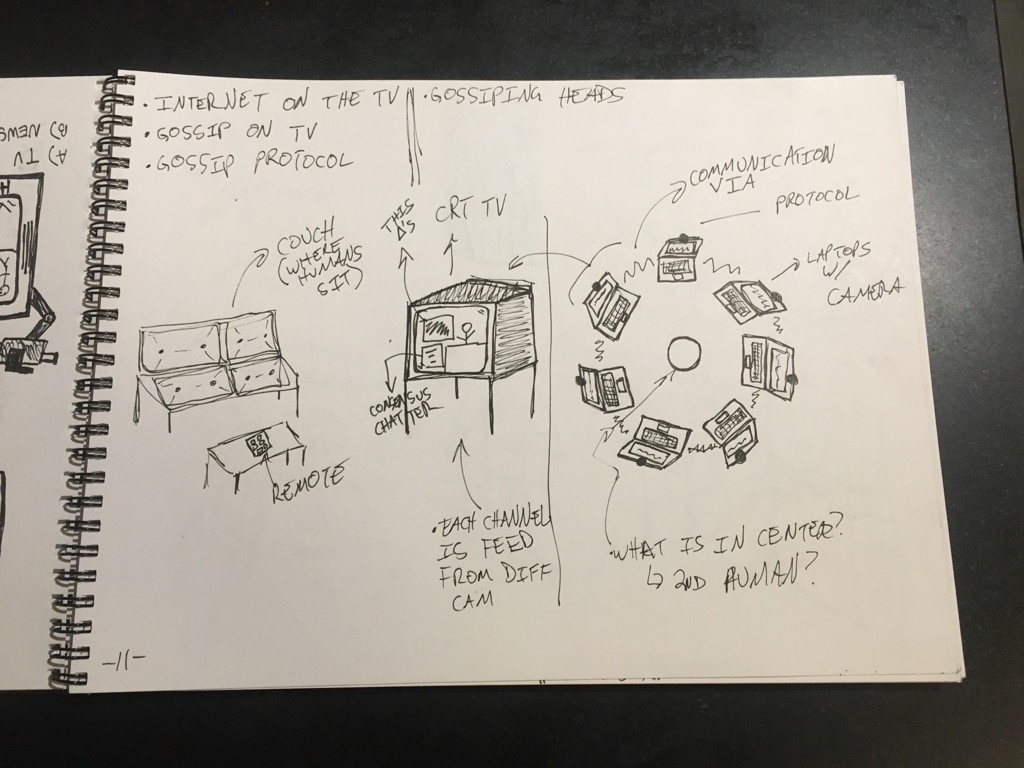 · INTERNET ON THE TV
· GOSSIP ON TV
· GOSSIP PROTOCOL
· GOSSIPING HEADS
COUCH
(WHERE
HUMANS
SIT)
REMOTE
THIS
CRT TV
CONSENSUS
CHATTER
· EACH CHANNEL
IS FEED
FROM DIFF
CAM
COMMUNICATION
VIA
PROTOCOL
LAPTOPS
W/
CAMERA
· WHAT IS IN CENTER?
↳ 2ND HUMAN?
-11-
A) TV
B) NEWS